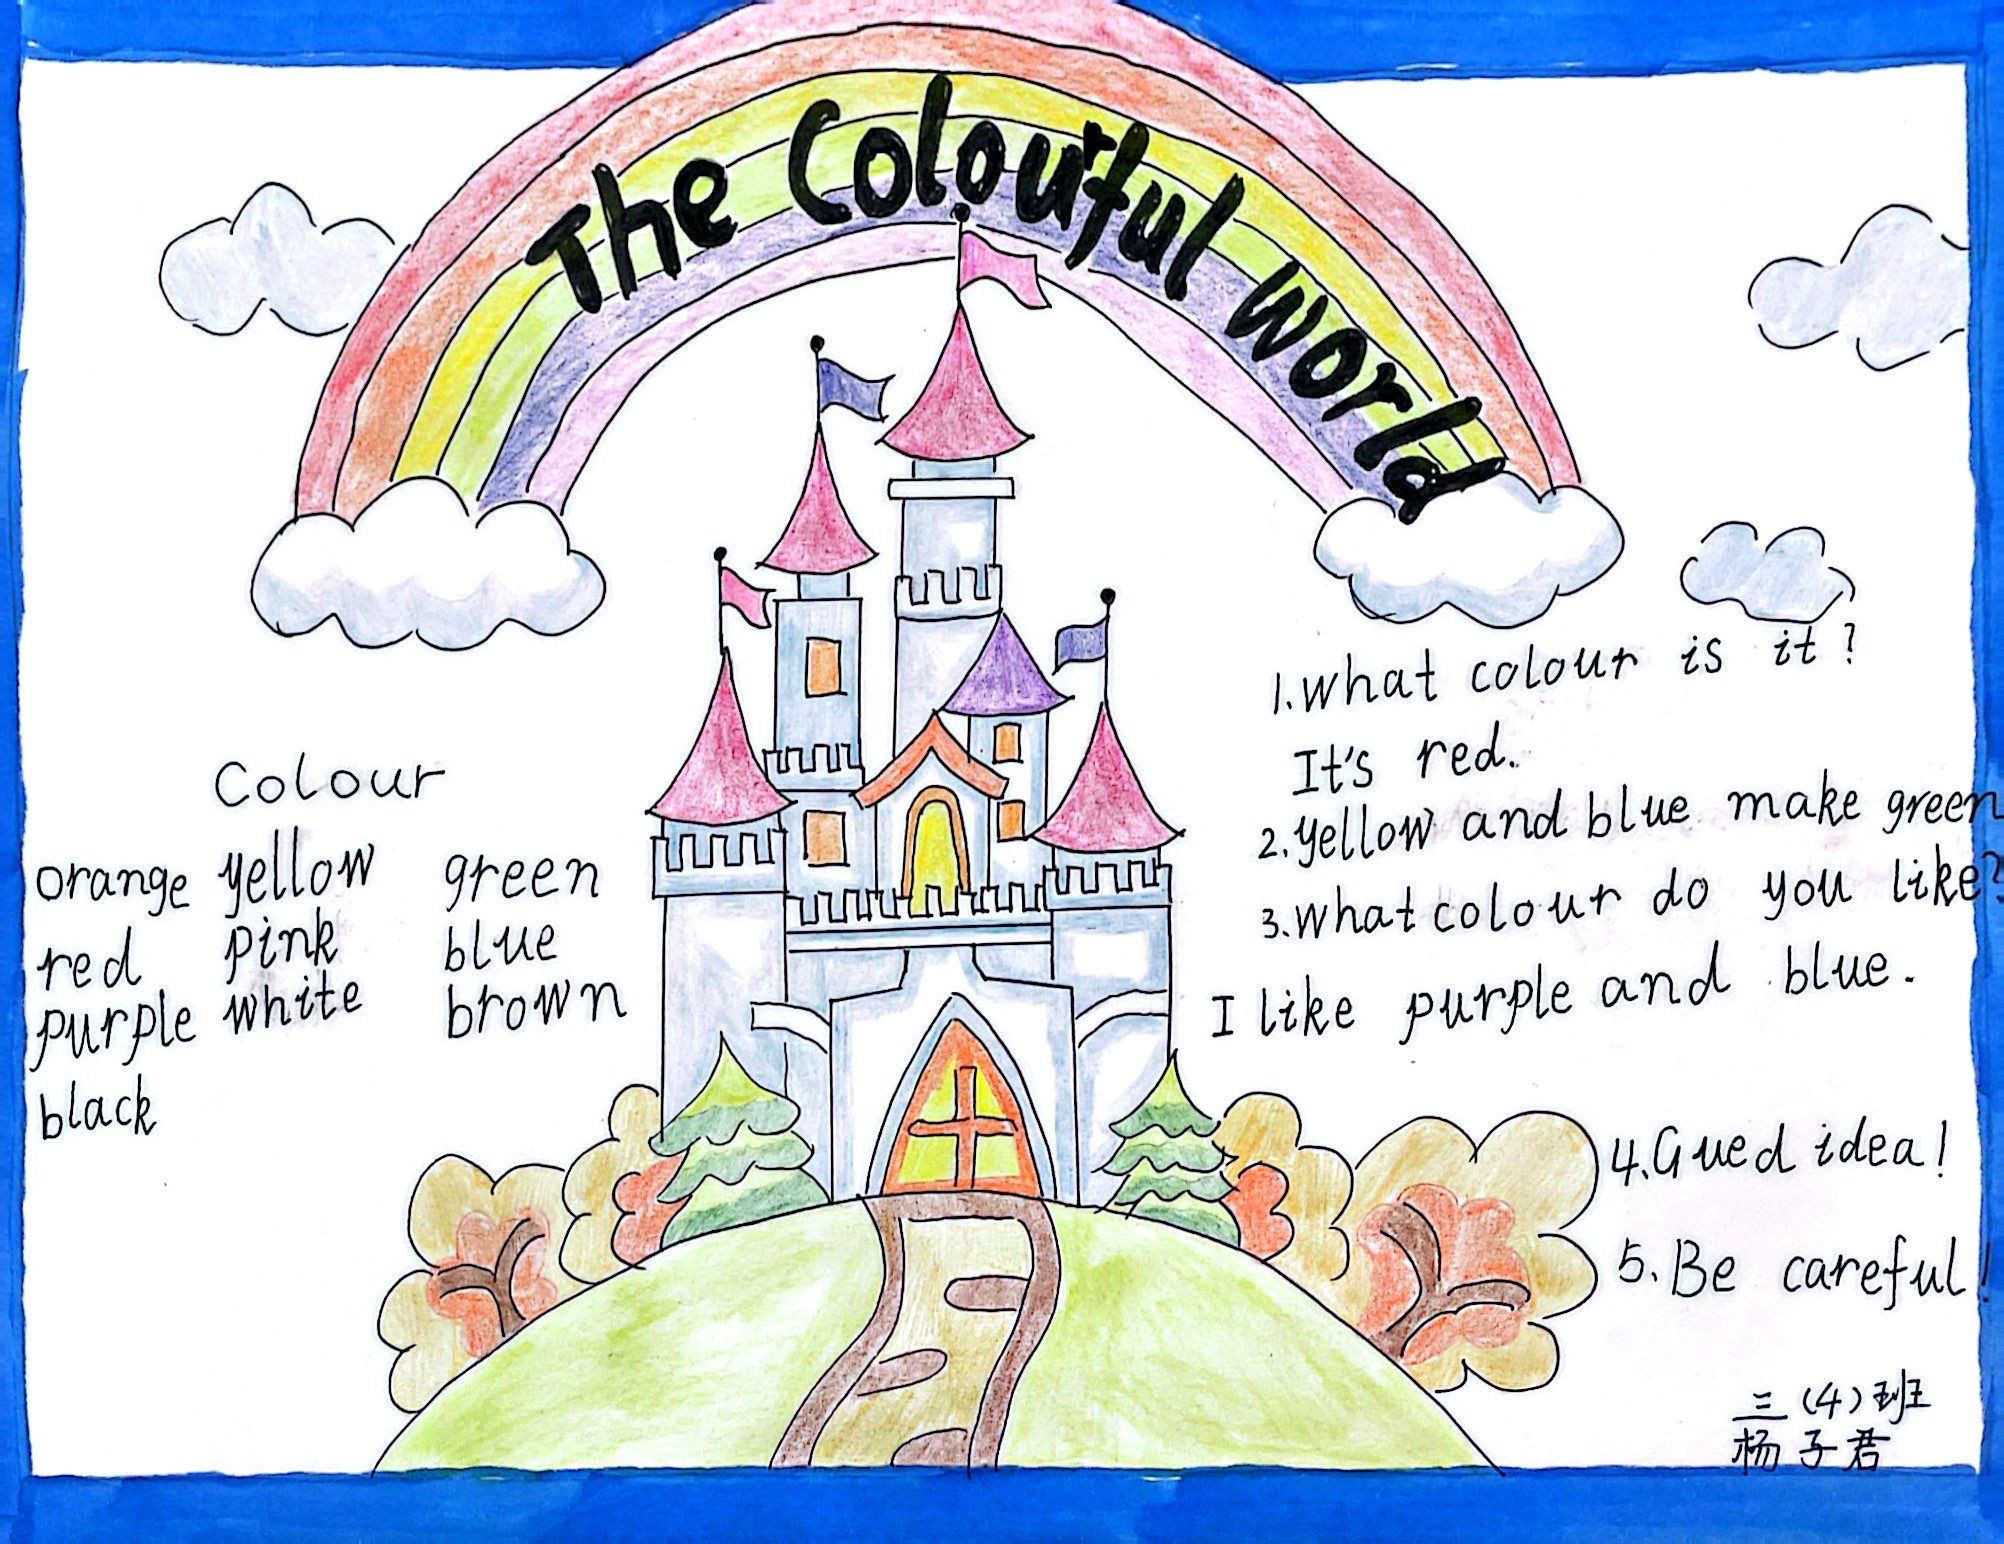 The Colourful World
Colour
orange yellow green
red pink blue
purple white brown
black
1. What colour is it?
It's red.
2. Yellow and blue make green
3. What colour do you like?
I like purple and blue.
4. Gued idea!
5. Be careful!
三(4)班
杨子君